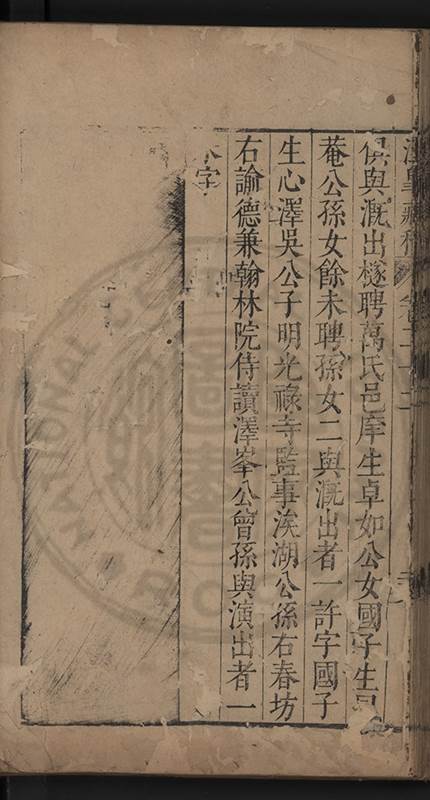 卷二十二
俱與溉出櫞聘萬氏邑庠生卓如公女國子生
菴公孫女餘未聘孫女二與溉出者一許字國子
生心澤吳公子明光祿寺監事涘湖公孫右春坊
右諭德兼翰林院侍讀澤峯公曾孫與演出者一
字